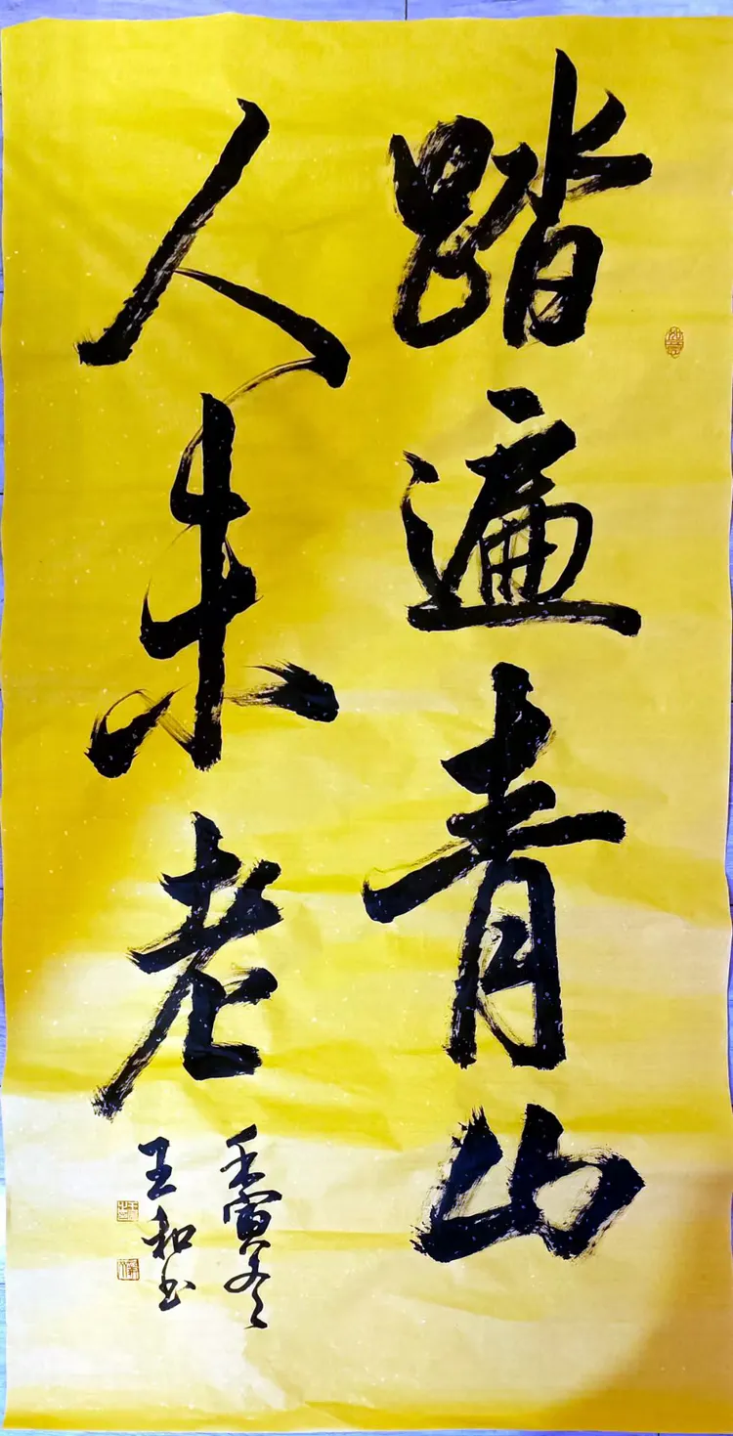 踏遍青山
人未老
壬寅冬
王和书